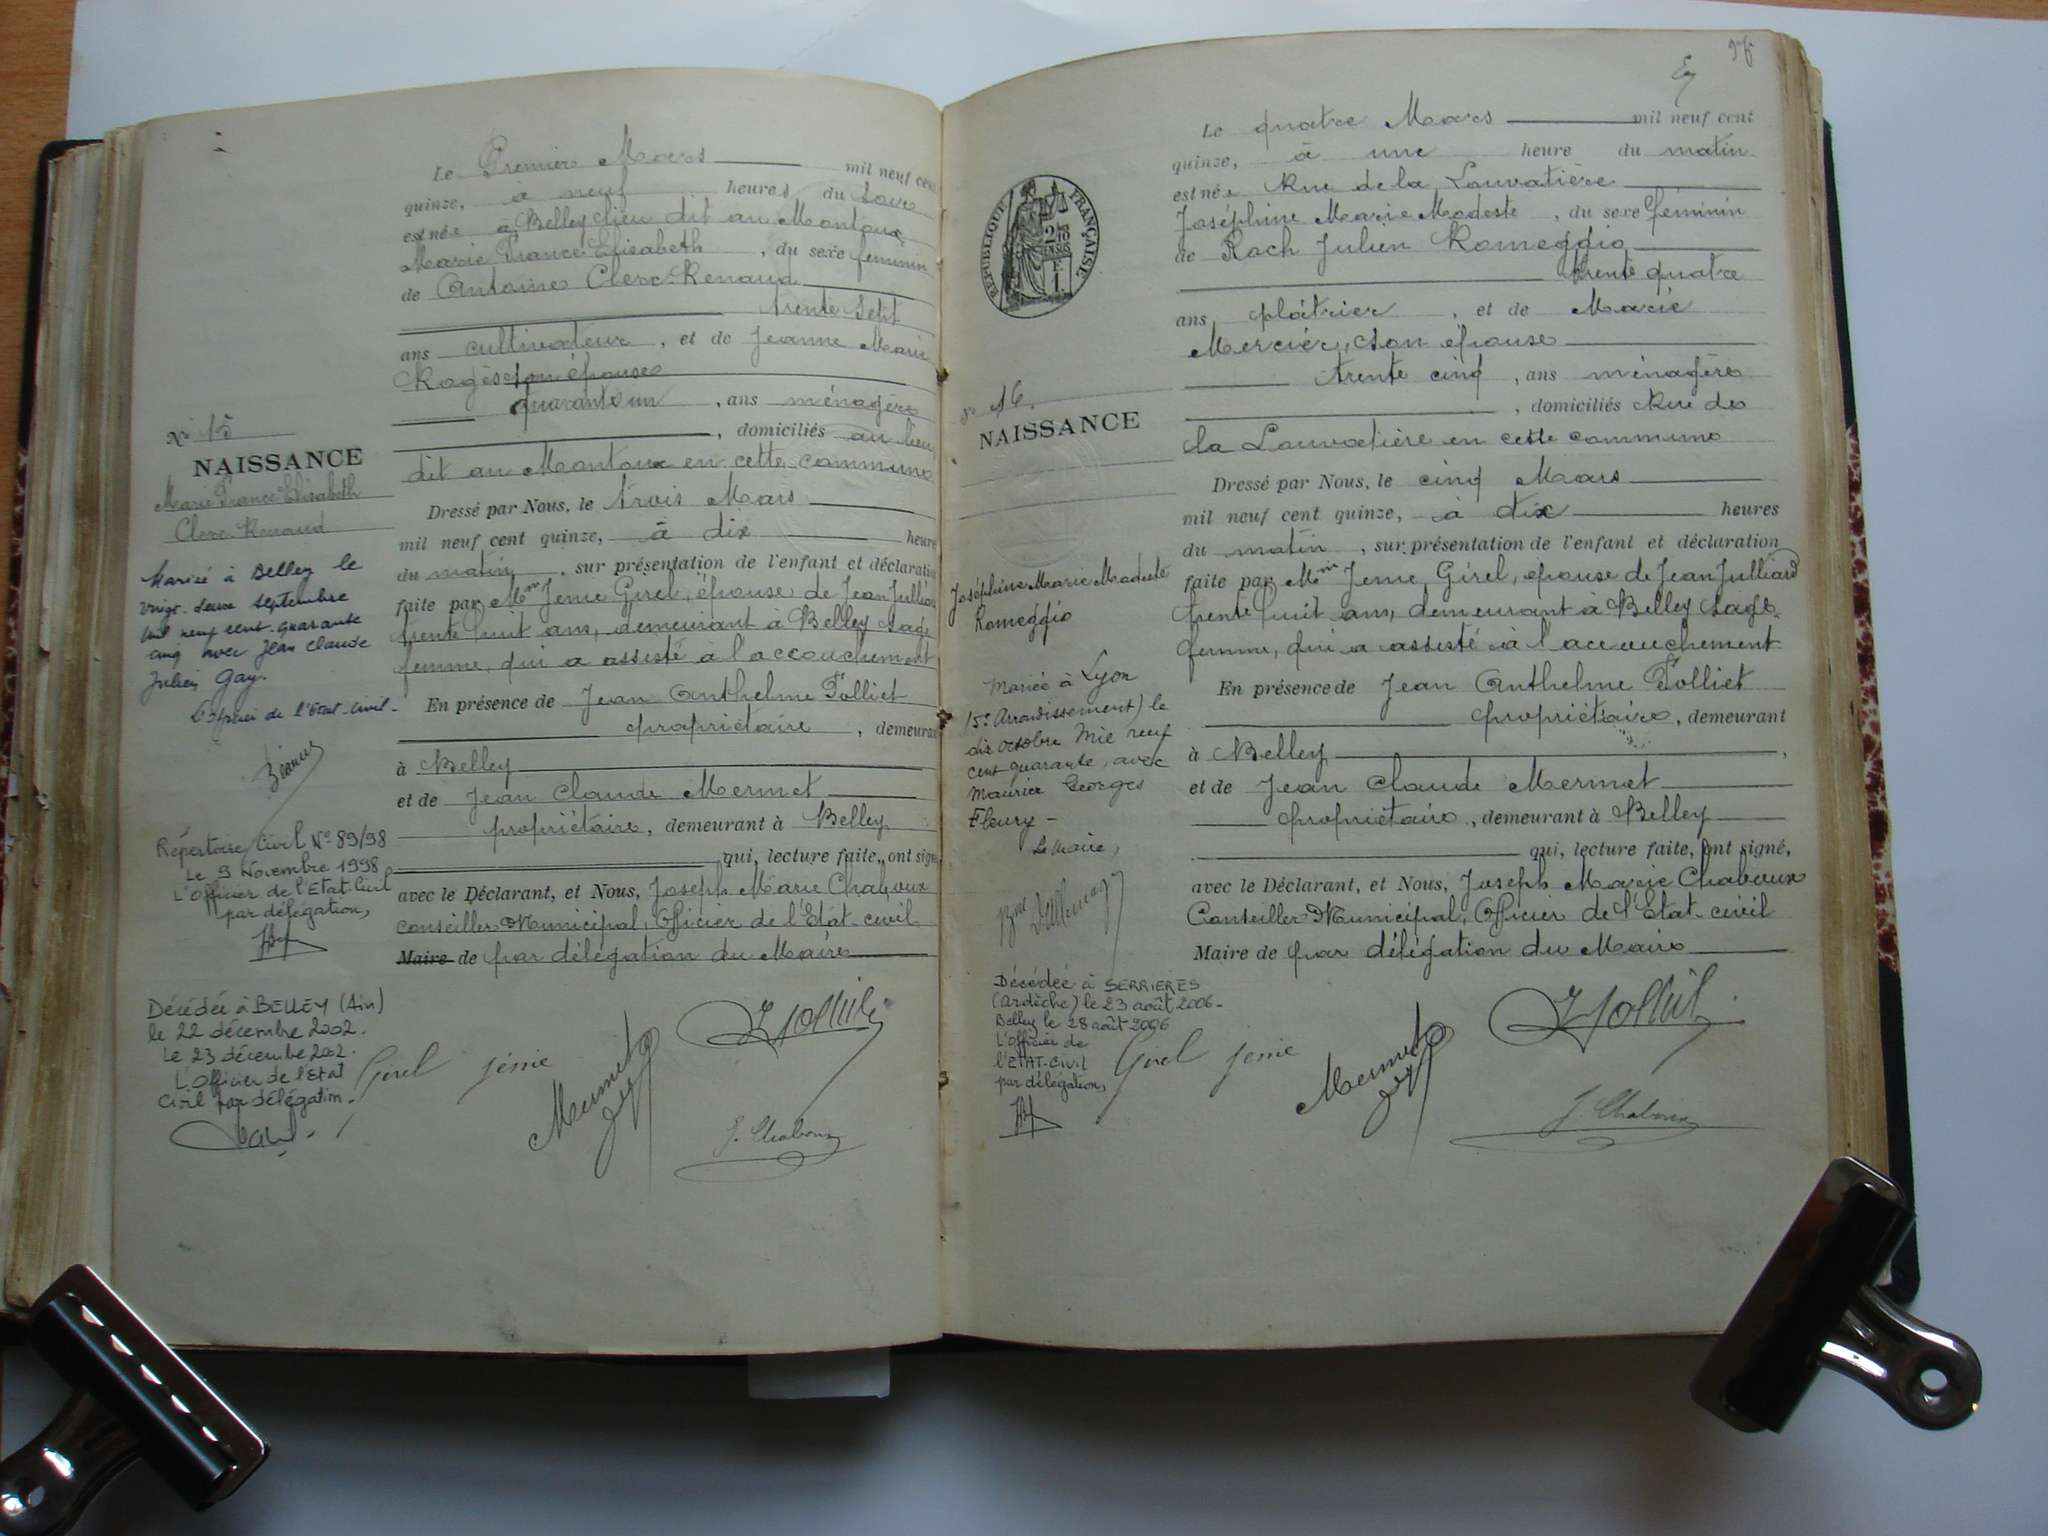 Le Premier Mars mil neuf cent
quinze, à neuf heures du soir
est née à Belley lieu dit au Montoux
Marie France Elisabeth, du sexe féminin
de Antoine Clerc-Renaud
trente sept
ans cultivateur, et de Jeanne Marie
Rogès son épouse
quarante un, ans ménagère
, domiciliés au lieu
dit au Montoux en cette commune
Dressé par Nous, le trois Mars
mil neuf cent quinze, à dix heure
du matin, sur présentation de l'enfant et déclaration
faite par Mme Jenie Girel, épouse de Jean Julliard
trente huit ans, demeurant à Belley Sage
femme, qui a assisté à l'accouchement
En présence de Jean Anthelme Tolliet
propriétaire, demeurant
à Belley
et de Jean Claude Mermet
propriétaire, demeurant à Belley
qui, lecture faite, ont signé
avec le Déclarant, et Nous, Joseph Marie Chaboux
Conseiller Municipal, Officier de l'Etat-civil
Maire de par délégation du Maire
Girel Jenie
Mermet
J Tolliet
J. Chaboux
No 15
NAISSANCE
Marie France Elisabeth
Clerc-Renaud
Mariée à Belley le
vingt-deux septembre
mil neuf cent quarante
cinq avec Jean Claude
Julien Gay.
L'officier de l'Etat-civil-
Répertoire Civil No 89/98
Le 9 Novembre 1998
L'Officier de l'Etat Civil
par délégation,
Décédée à BELLEY (Ain)
le 22 décembre 2002.
Le 23 décembre 2002.
L'Officier de l'Etat
Civil par délégation.
Le quatre Mars mil neuf cent
quinze, à une heure du matin
est née Rue de la Louvatière
Joséphine Marie Modeste, du sexe féminin
de Roch Julien Romeggio
trente quatre
ans plâtrier, et de Marie
Mercier, son épouse
trente cinq, ans ménagère
, domiciliés Rue de
la Louvatière en cette commune
Dressé par Nous, le cinq Mars
mil neuf cent quinze, à dix heures
du matin, sur présentation de l'enfant et déclaration
faite par Mme Jenie Girel, épouse de Jean Julliard
trente huit ans, demeurant à Belley Sage-
femme, qui a assisté à l'accouchement
En présence de Jean Anthelme Tolliet
propriétaire, demeurant
à Belley,
et de Jean Claude Mermet
propriétaire, demeurant à Belley
qui, lecture faite, ont signé,
avec le Déclarant, et Nous, Joseph Marie Chaboux
Conseiller Municipal, Officier de l'Etat-civil
Maire de par délégation du Maire
Girel Jenie
Mermet
J Tolliet
J. Chaboux
RÉPUBLIQUE FRANÇAISE
No 16
NAISSANCE
Joséphine Marie Modeste
Romeggio
Mariée à Lyon
(5e Arrondissement) le
dix octobre Mil neuf
cent quarante, avec
Maurice Georges
Fleury-
Le Maire,
Décédée à SERRIERES
(Ardèche) le 23 août 2006-
Belley le 28 août 2006
L'Officier de
l'ETAT-CIVIL
par délégation,